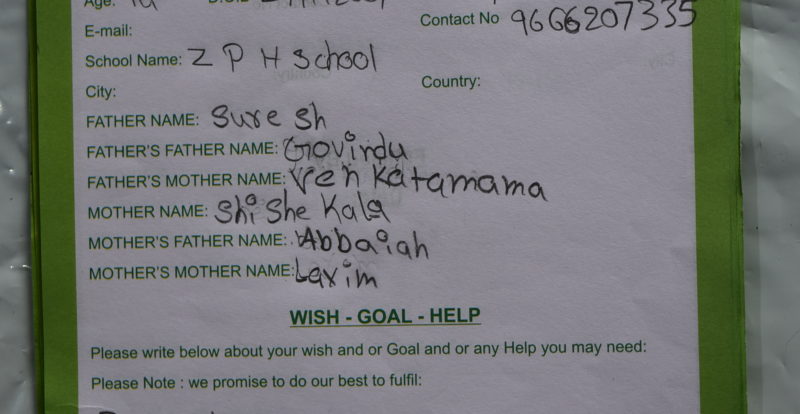 Age:
Contact No 9666207335
E-mail:
School Name: Z P H School
City:
Country:
FATHER NAME: Suresh
FATHER'S FATHER NAME: Govirdu
FATHER'S MOTHER NAME: Venkatamama
MOTHER NAME: Shi She Kala
MOTHER'S FATHER NAME: Abbaiah
MOTHER'S MOTHER NAME: Laxim
WISH - GOAL - HELP
Please write below about your wish and or Goal and or any Help you may need:
Please Note : we promise to do our best to fulfil: